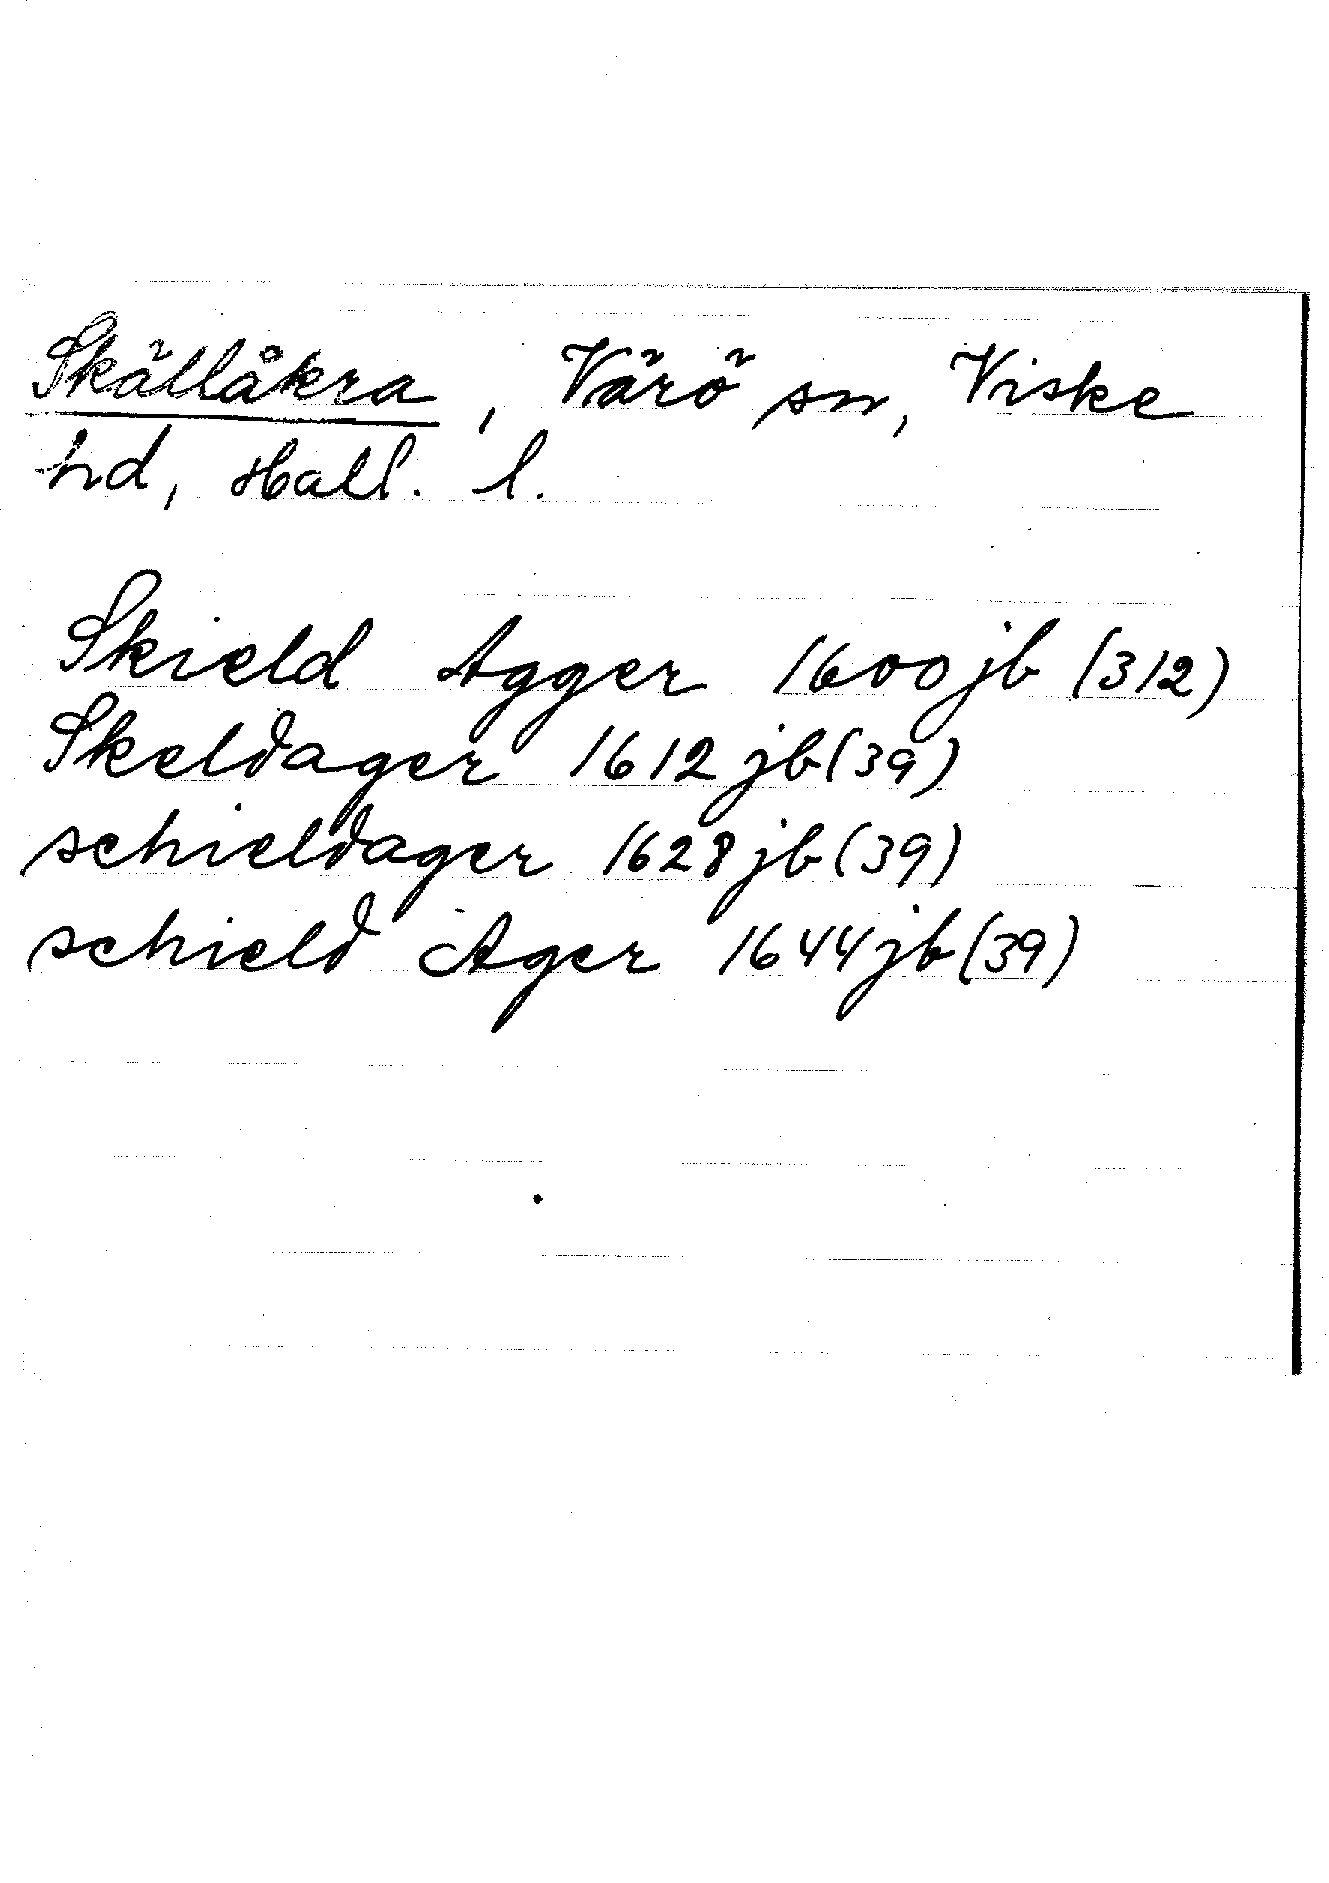 Skällåkra, Värö sn, Viske
hd, Hall. l.
Skield Agger 1600 jb (312)
Skeldager 1612 jb (39)
schieldager 1628 jb (39)
schield Ager 1644 jb (39)